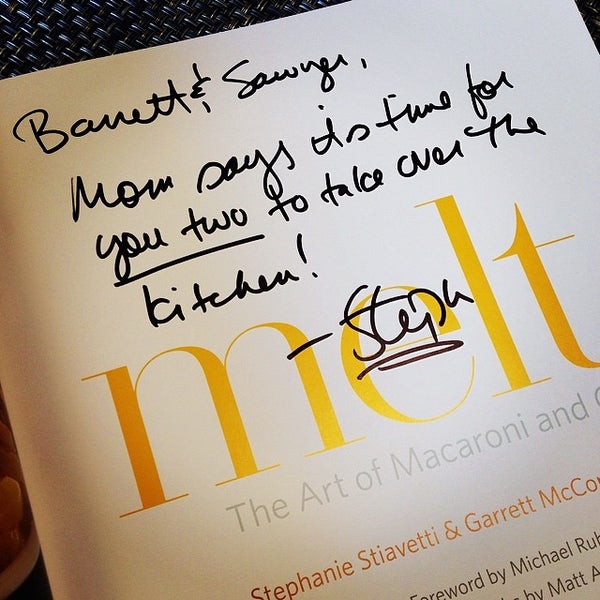 Barrett & Sawyer,
Mom says its time for
you two to take over the
kitchen!
- Steph
melt
The Art of Macaroni and
Stephanie Stiavetti & Garrett McCo
Foreword by Michael Ruh
by Matt A